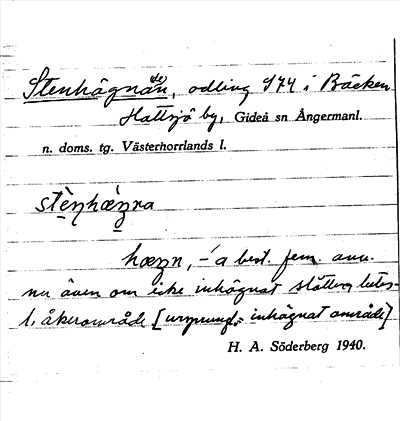 Stenhägnan, odling 974 i Bäcken
Hattsjö by, Gideå sn Ångermanl.
n. doms. tg. Västerhorrlands l.
stèn̥hæ̀ŋna
hægn, -´a best. fem. anv.
nu även om icke inhägnat slåtter betes-
l. åkerområde [urspungl.= inhägnat område]
H. A. Söderberg 1940.